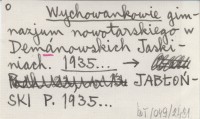 o
Wychowankowie gim-
nazjum nowotarskiego w
Demanowskich Jaski-
niach. 1935... →
JABŁOŃ-
SKI P. 1935...